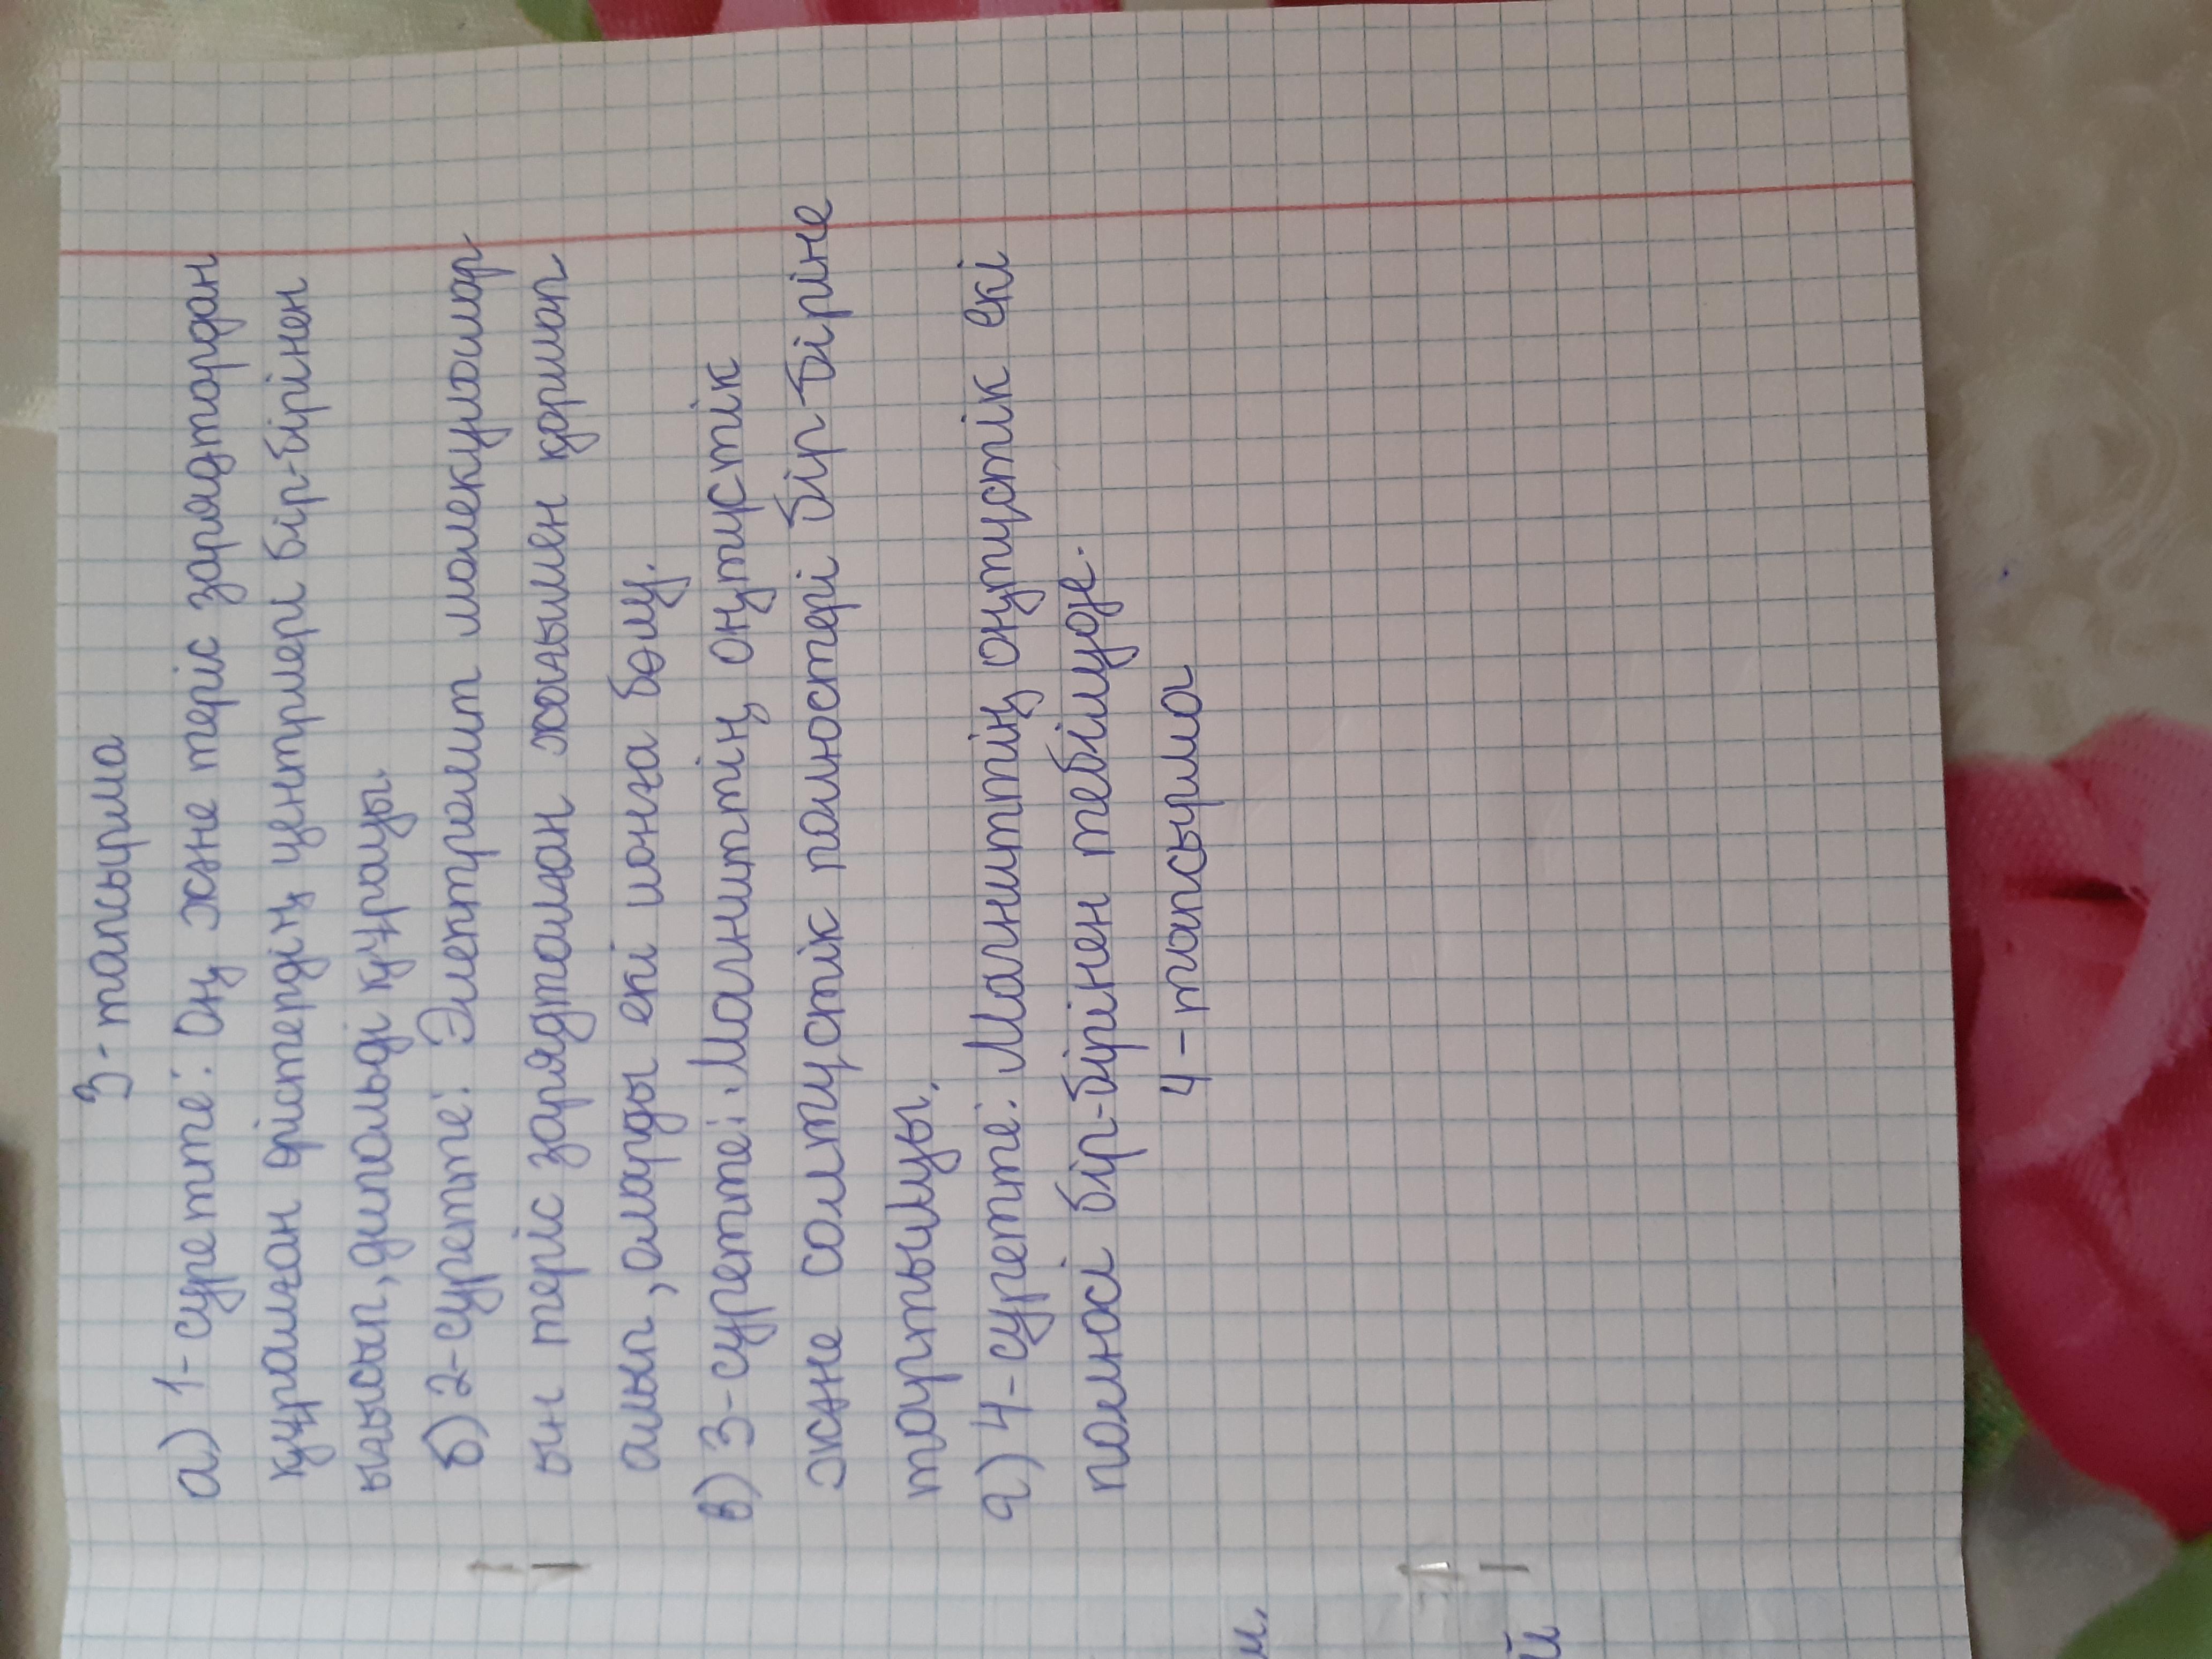 3-тапсырма
а) 1-суретте: Оң және теріс зарядтардан
құралған өрістердің центрлері бір-бірінен
ығысып, дипольді құрауы
б) 2-суретте: Электролит молекулалар
ын теріс зарядталған жағымен қоршап
алып, аларды екі ионға бөлу.
в) 3-суретте: Магниттің оңтүстік
және солтүстік полюстері бір-біріне
тартылуы.
г) 4-суретте: Магниттің оңтүстік екі
полюсі бір-бірінен тебілуде.
4-тапсырма
м.
й